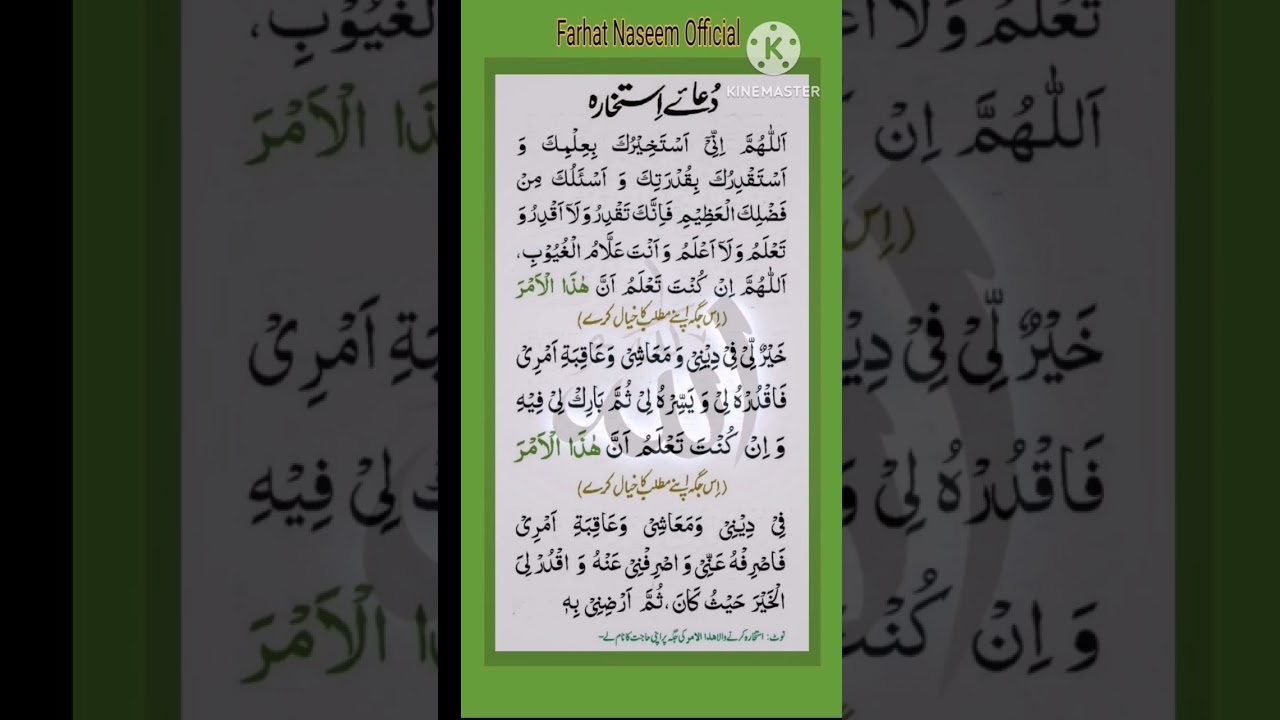 Farhat Naseem Official
K
KINEMASTER
دُعائے اِستخارہ
اَللّٰهُمَّ اِنِّیْٓ اَسْتَخِیْرُكَ بِعِلْمِكَ وَ
اَسْتَقْدِرُكَ بِقُدْرَتِكَ وَ اَسْئَلُكَ مِنْ
فَضْلِكَ الْعَظِیْمِ فَاِنَّكَ تَقْدِرُ وَلَآ اَقْدِرُ وَ
تَعْلَمُ وَلَآ اَعْلَمُ وَاَنْتَ عَلَّامُ الْغُیُوْبِ،
اَللّٰهُمَّ اِنْ كُنْتَ تَعْلَمُ اَنَّ هٰذَا الْاَمْرَ
(اِس جگہ اپنے مطلب کا خیال کرے)
خَیْرٌ لِّیْ فِیْ دِیْنِیْ وَمَعَاشِیْ وَعَاقِبَةِ اَمْرِیْ
فَاقْدُرْهُ لِیْ وَ یَسِّرْهُ لِیْ ثُمَّ بَارِكْ لِیْ فِیْهِ
وَ اِنْ كُنْتَ تَعْلَمُ اَنَّ هٰذَا الْاَمْرَ
(اِس جگہ اپنے مطلب کا خیال کرے)
فِیْ دِیْنِیْ وَمَعَاشِیْ وَعَاقِبَةِ اَمْرِیْ
فَاصْرِفْهُ عَنِّیْ وَ اصْرِفْنِیْ عَنْهُ وَ اقْدُرْ لِیَ
الْخَیْرَ حَیْثُ كَانَ، ثُمَّ اَرْضِنِیْ بِهٖ
نوٹ: استخارہ کرنے والا هذا الامر کی جگہ پر اپنی حاجت کا نام لے۔